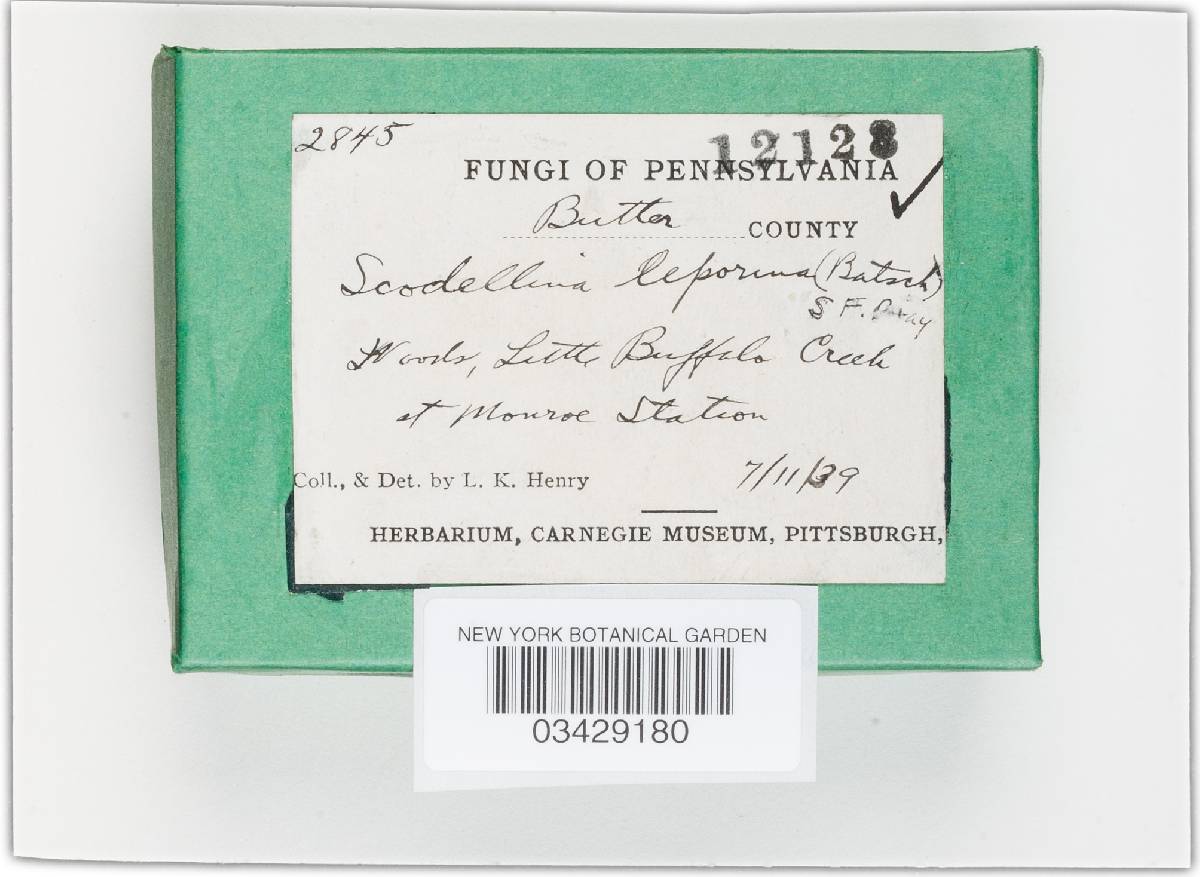 2845
12128
FUNGI OF PENNSYLVANIA
Butler COUNTY
Scodellina leporina (Batsch)
S F. Gray
Woods, Little Buffalo Creek
at Monroe Station
Coll., & Det. by L. K. Henry 7/11/39
HERBARIUM, CARNEGIE MUSEUM, PITTSBURGH,
NEW YORK BOTANICAL GARDEN
03429180